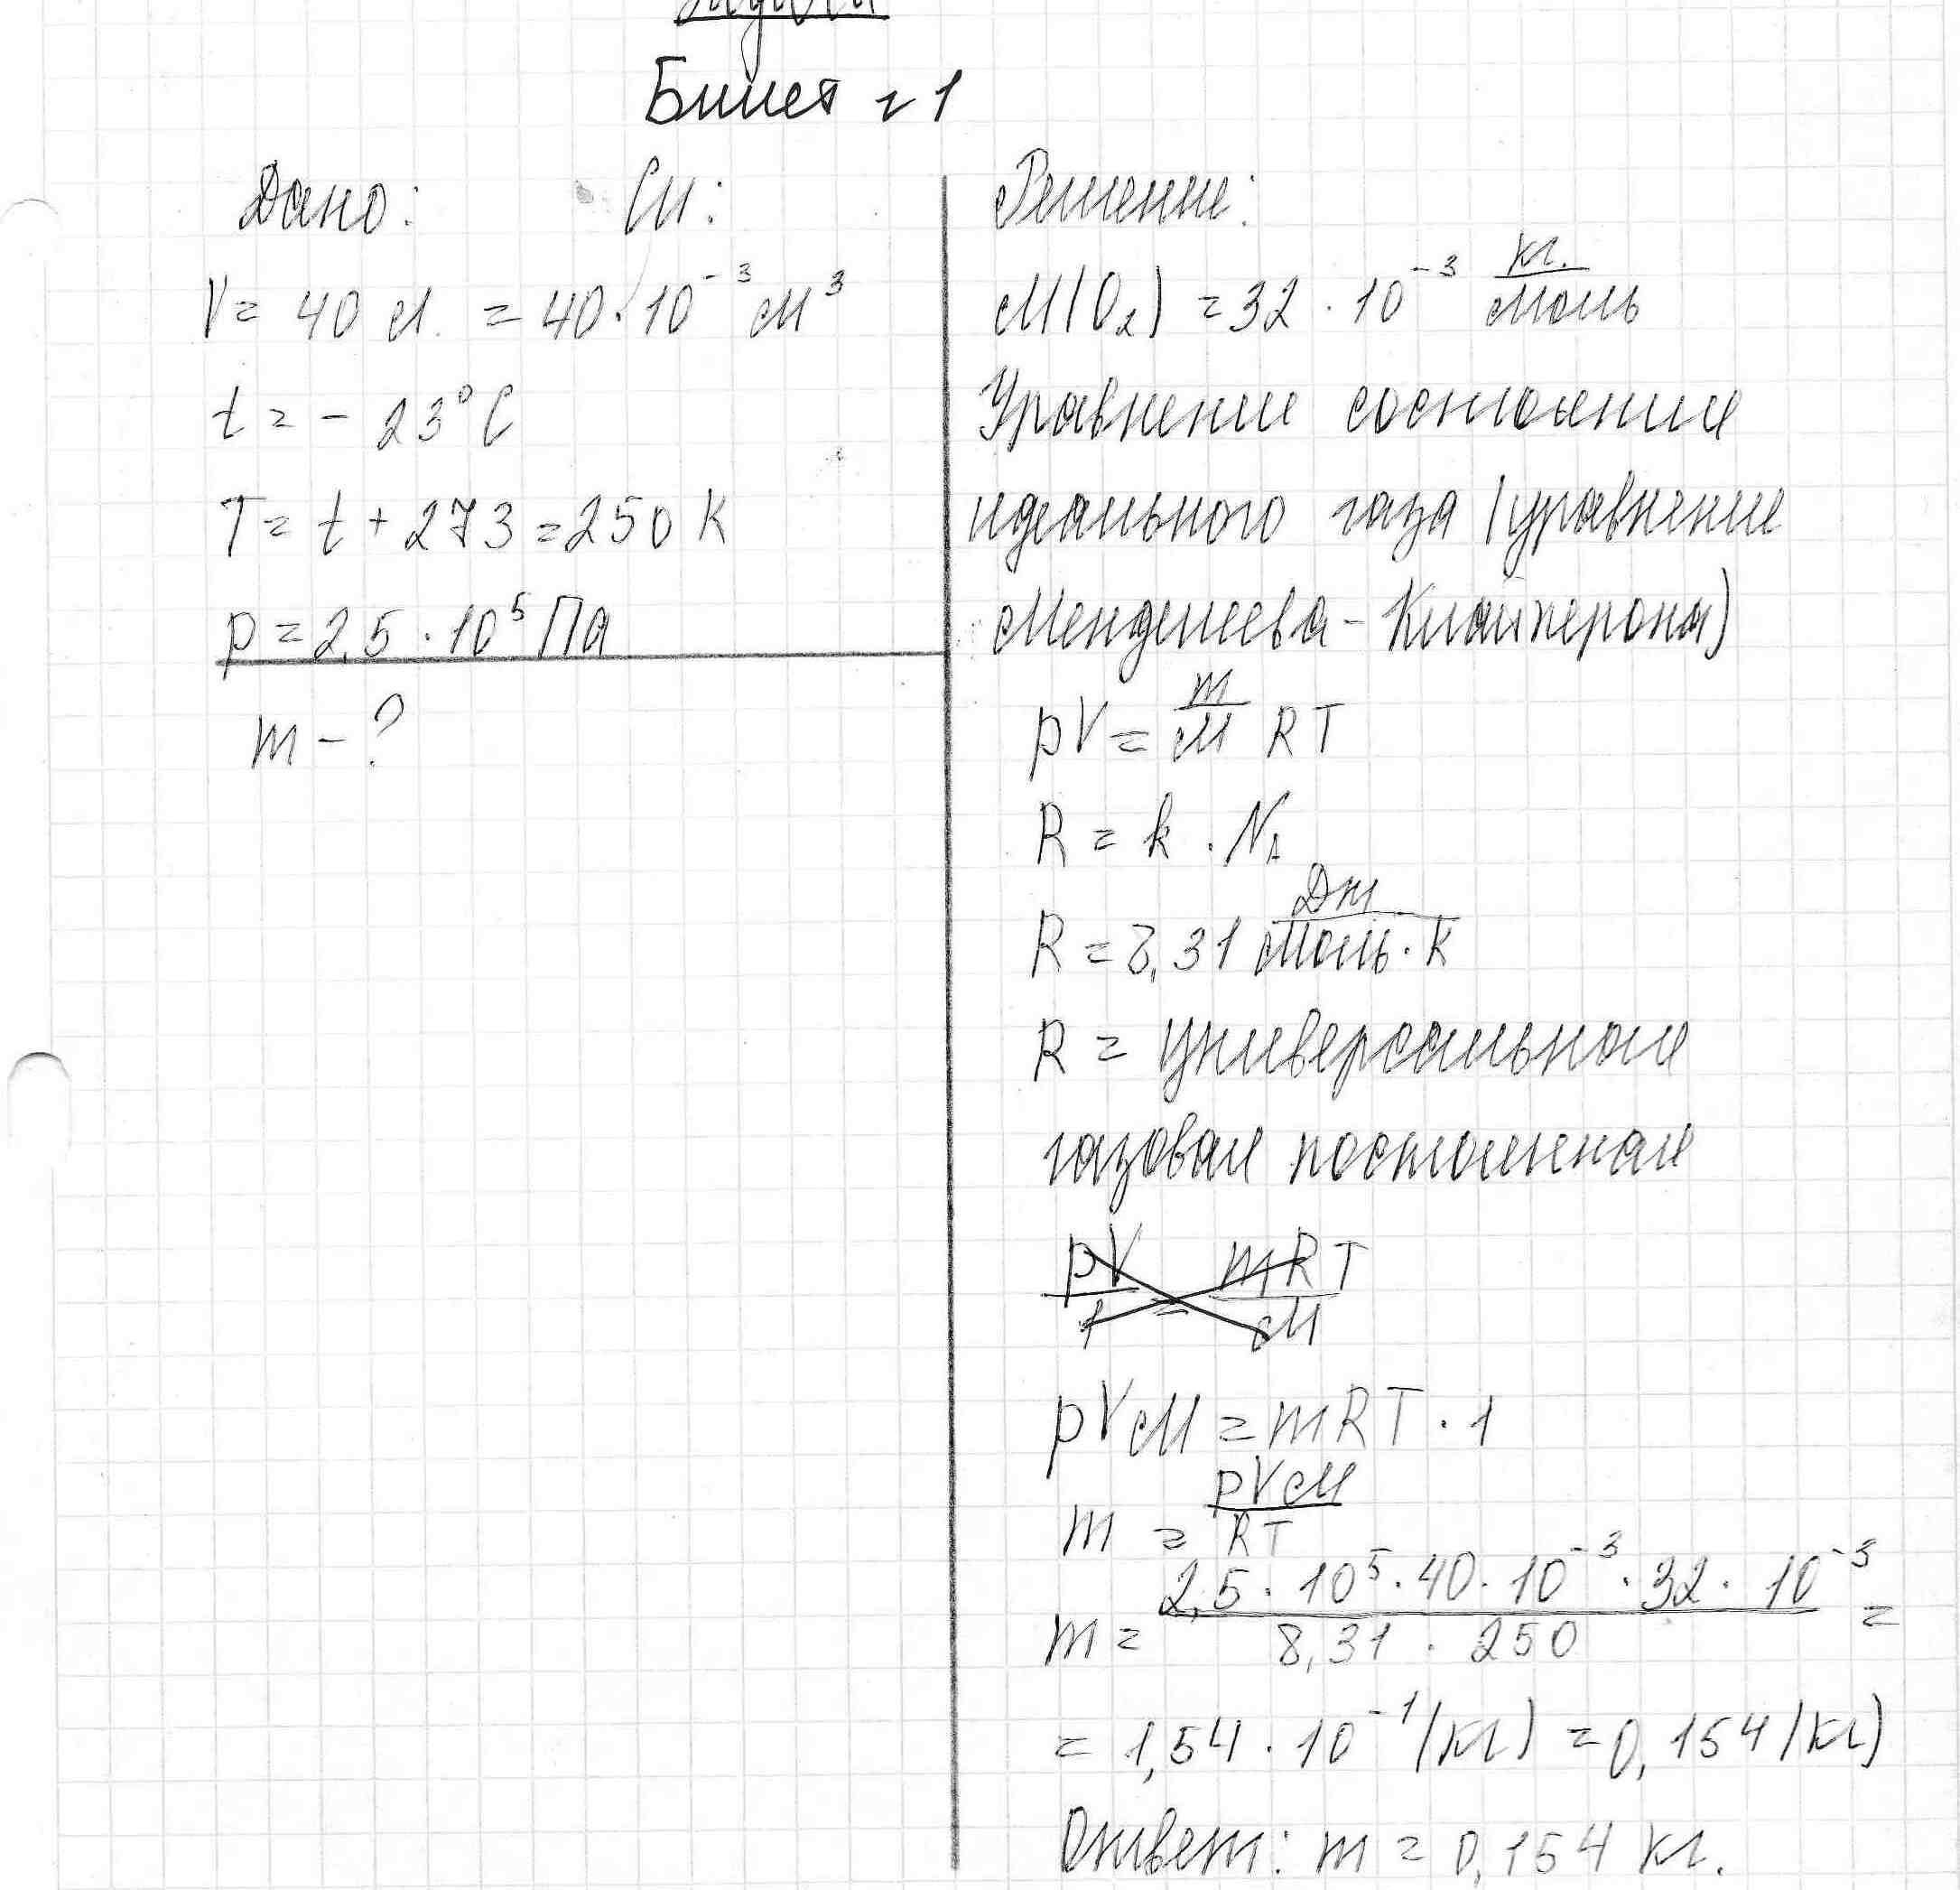 Билет № 1
Дано: Си:
V = 40 л. = 40 · 10⁻³ м³
t = - 23°C
T = t + 273 = 250 K
p = 2,5 · 10⁵ Па
m - ?
Решение:
M(O₂) = 32 · 10⁻³ кг./моль
Уравнение состояния
идеального газа (уравнение
Менделеева - Клайперона)
pV = m/M RT
R = k · Nₐ
R = 8,31 Дж/моль · K
R = универсальная
газовая постоянная
pV/1 = mRT/M
pVM = mRT · 1
m = pVM/RT
m = 2,5 · 10⁵ · 40 · 10⁻³ · 32 · 10⁻³ / 8,31 · 250 =
= 1,54 · 10⁻¹ (кг) = 0,154 (кг)
Ответ: m = 0,154 кг.